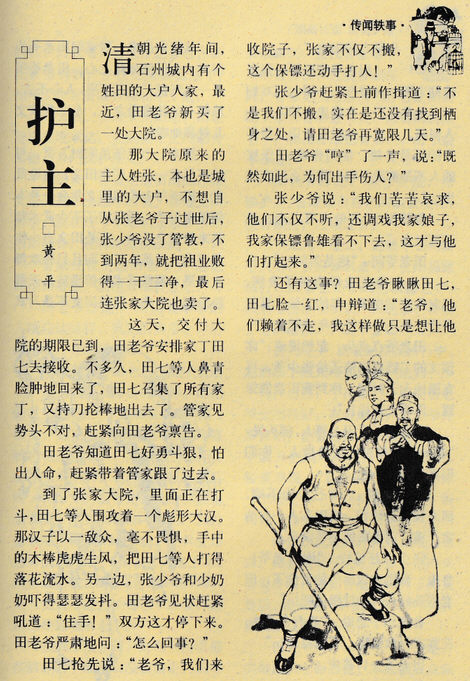 ·传闻轶事·
护主
□黄平
清朝光绪年间，
石州城内有个
姓田的大户人家，最
近，田老爷新买了
一处大院。
那大院原来的
主人姓张，本也是城
里的大户，不想自
从张老爷子过世后，
张少爷没了管教，不
到两年，就把祖业败
得一干二净，最后
连张家大院也卖了。
这天，交付大
院的期限已到，田老爷安排家丁田
七去接收。不多久，田七等人鼻青
脸肿地回来了，田七召集了所有家
丁，又持刀抡棒地出去了。管家见
势头不对，赶紧向田老爷禀告。
田老爷知道田七好勇斗狠，怕
出人命，赶紧带着管家跟了过去。
到了张家大院，里面正在打
斗，田七等人围攻着一个彪形大汉。
那汉子以一敌众，毫不畏惧，手中
的木棒虎虎生风，把田七等人打得
落花流水。另一边，张少爷和少奶
奶吓得瑟瑟发抖。田老爷见状赶紧
吼道：“住手！”双方这才停下来。
田老爷严肃地问：“怎么回事？”
田七抢先说：“老爷，我们来
收院子，张家不仅不搬，
这个保镖还动手打人！”
张少爷赶紧上前作揖道：“不
是我们不搬，实在是还没有找到栖
身之处，请田老爷再宽限几天。”
田老爷“哼”了一声，说：“既
然如此，为何出手伤人？”
张少爷说：“我们苦苦哀求，
他们不仅不听，还调戏我家娘子，
我家保镖鲁雄看不下去，这才与他
们打起来。”
还有这事？田老爷瞅瞅田七，
田七脸一红，申辩道：“老爷，他
们赖着不走，我这样做只是想让他